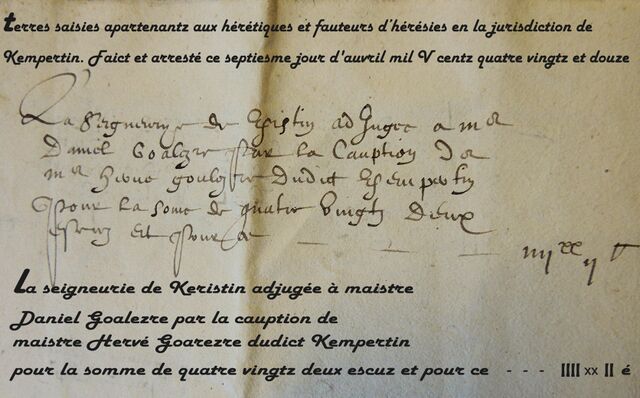 terres saisies apartenantz aux hérétiques et fauteurs d'hérésies en la jurisdiction de
Kempertin. Faict et arresté ce septiesme jour d'auvril mil V centz quatre vingtz et douze
La Seigneurye de Kristin adjugee a mᵉ
Daniel Goalezre par la Caution de
mᵉ herve goulezre dudict Kempertin
pour la some de quatre vingtz deux
escuz et pour ce — — —
iiijˣˣ ij
La seigneurie de Keristin adjugée à maistre
Daniel Goalezre par la cauption de
maistre Hervé Goarezre dudict Kempertin
pour la somme de quatre vingtz deux escuz et pour ce - - - IIII xx II é